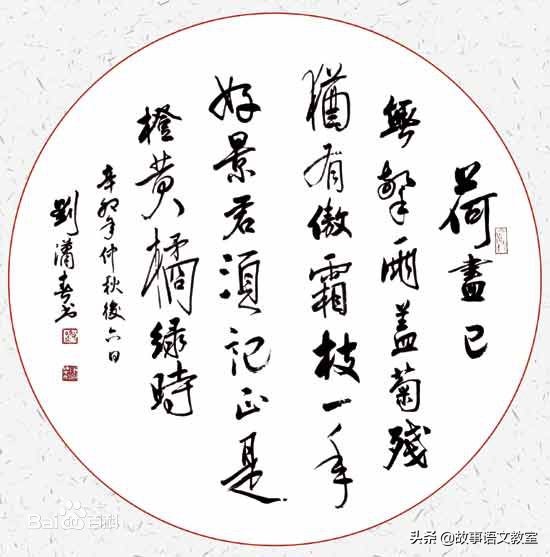 荷盡已
無擎雨盖菊殘
猶有傲霜枝一年
好景君須記正是
橙黄橘緑時
辛卯年仲秋後六日
劉
Bai百科
头条 @故事语文教室